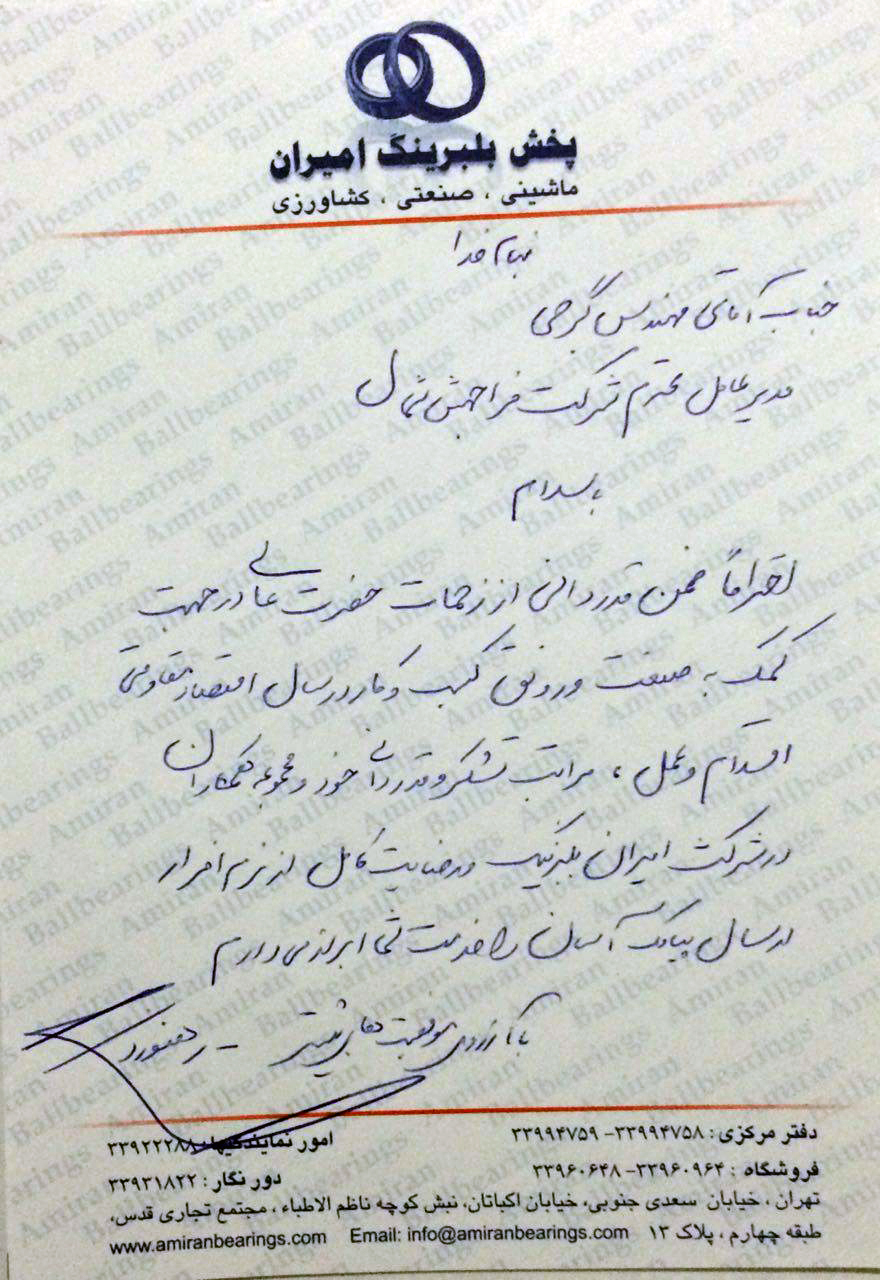 پخش بلبرینگ امیران
ماشینی ، صنعتی ، کشاورزی
بنام خدا
جناب آقای مهندس گرجی
مدیر عامل محترم شرکت فراجهش شمال
با سلام
احتراماً ضمن قدردانی از زحمات حضرت عالی در جهت
کمک به صنعت و رونق کسب و کار در سال اقتصاد مقاومتی
اقدام و عمل ، مراتب تشکر و قدردانی خود و مجموعه همکاران
در شرکت امیران بلبرینگ و رضایت کامل از نرم افزار
ارسال پیامک آسان را خدمت شما ابراز می دارم
با آرزوی موفقیت های بیشتر -
دفتر مرکزی : ۳۳۹۹۴۷۵۸- ۳۳۹۹۴۷۵۹
امور نمایندگیها : ۳۳۹۲۲۲۸۸
فروشگاه : ۳۳۹۶۰۹۶۴- ۳۳۹۶۰۶۴۸
دور نگار : ۳۳۹۳۱۸۲۲
تهران ، خیابان سعدی جنوبی، خیابان اکباتان، نبش کوچه ناظم الاطباء ، مجتمع تجاری قدس،
طبقه چهارم ، پلاک ۱۳ Email: info@amiranbearings.com www.amiranbearings.com